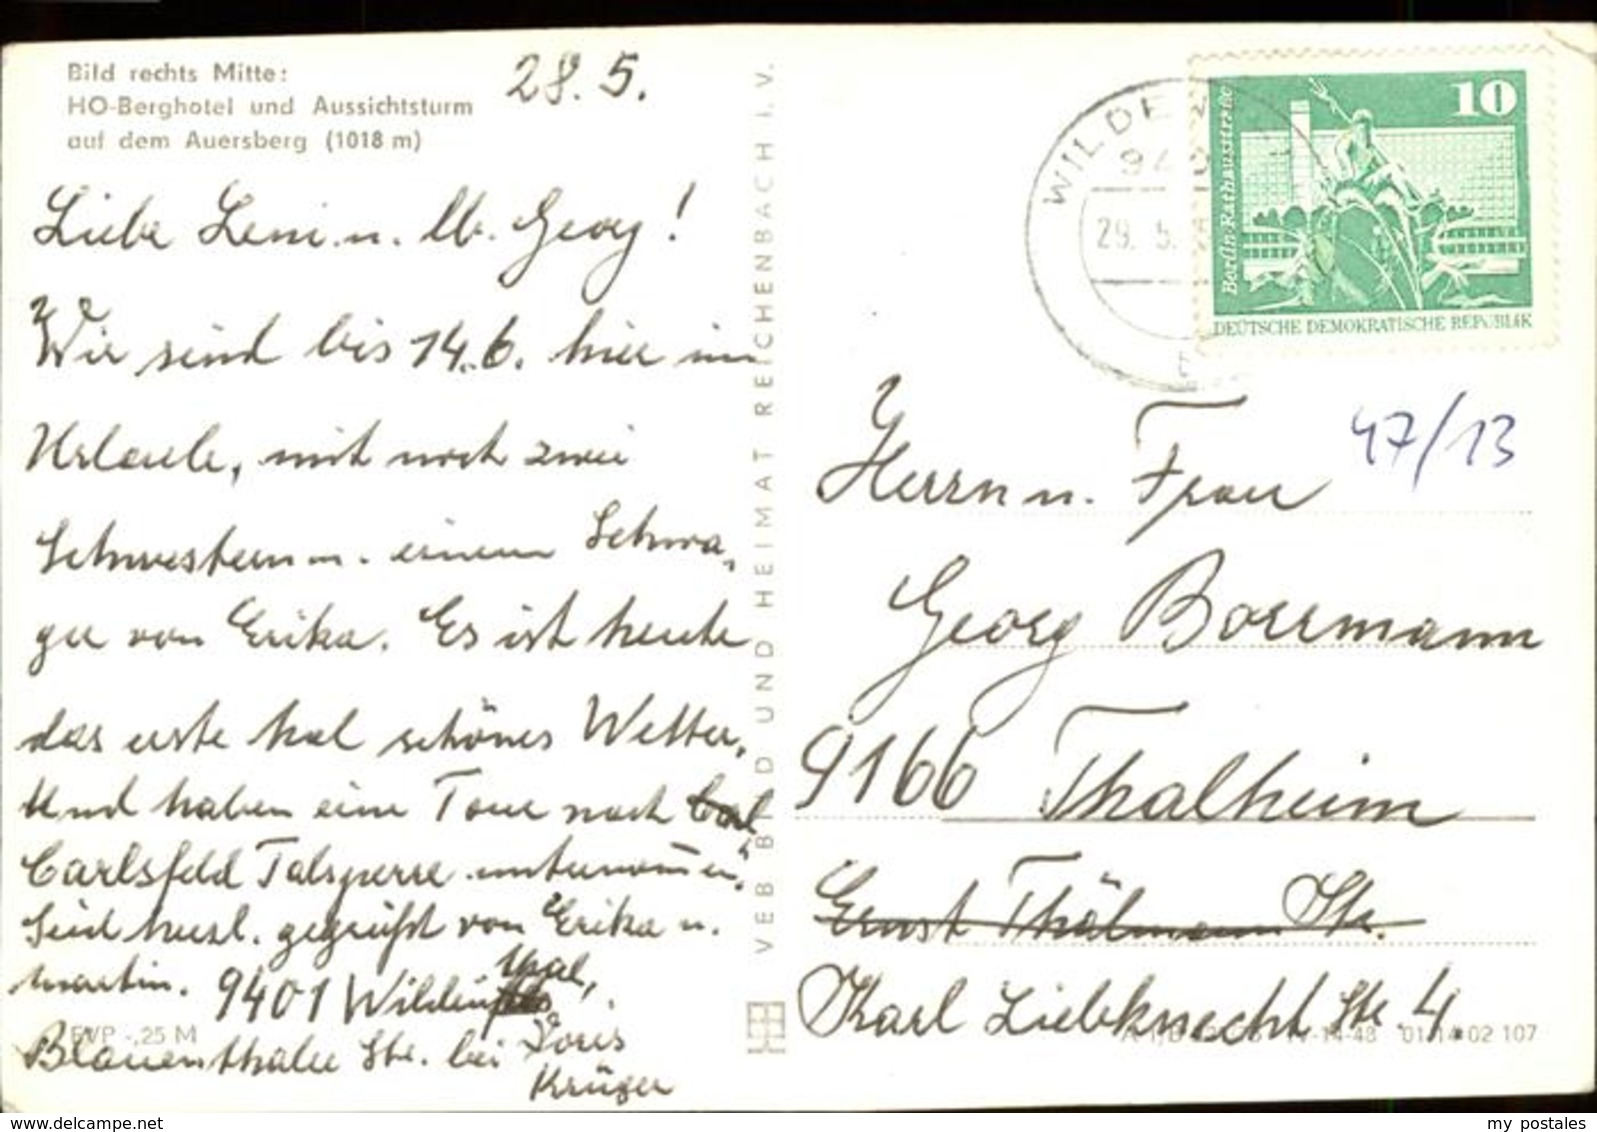 Bild rechts Mitte:
HO-Berghotel und Aussichtsturm
auf dem Auersberg (1018 m)
28. 5.
Liebe Leni u. lb. Georg!
Wir sind bis 14.6. hier im
Urlaub, mit noch zwei
Schwestern u. einem Schwa-
ger von Erika. Es ist heute
das erste Mal schönes Wetter.
Und haben eine Tour nach Carl
Carlsfeld Talsperre unternom̄en.
Seid herzl. gegrüßt von Erika u.
Martin. 9401 Wildenthal,
Blauenthaler Str. bei Doris
Krüger
EVP -,25 M
VEB BILD UND HEIMAT REICHENBACH I. V.
WILDE
94
29. 5.
10
Berlin, Rathausstraße
DEUTSCHE DEMOKRATISCHE REPUBLIK
47/13
Herrn u. Frau
Georg Borrmann
9166 Thalheim
Ernst Thälmann Str.
Karl Liebknecht Str. 4.
01 14 02 107
my postales